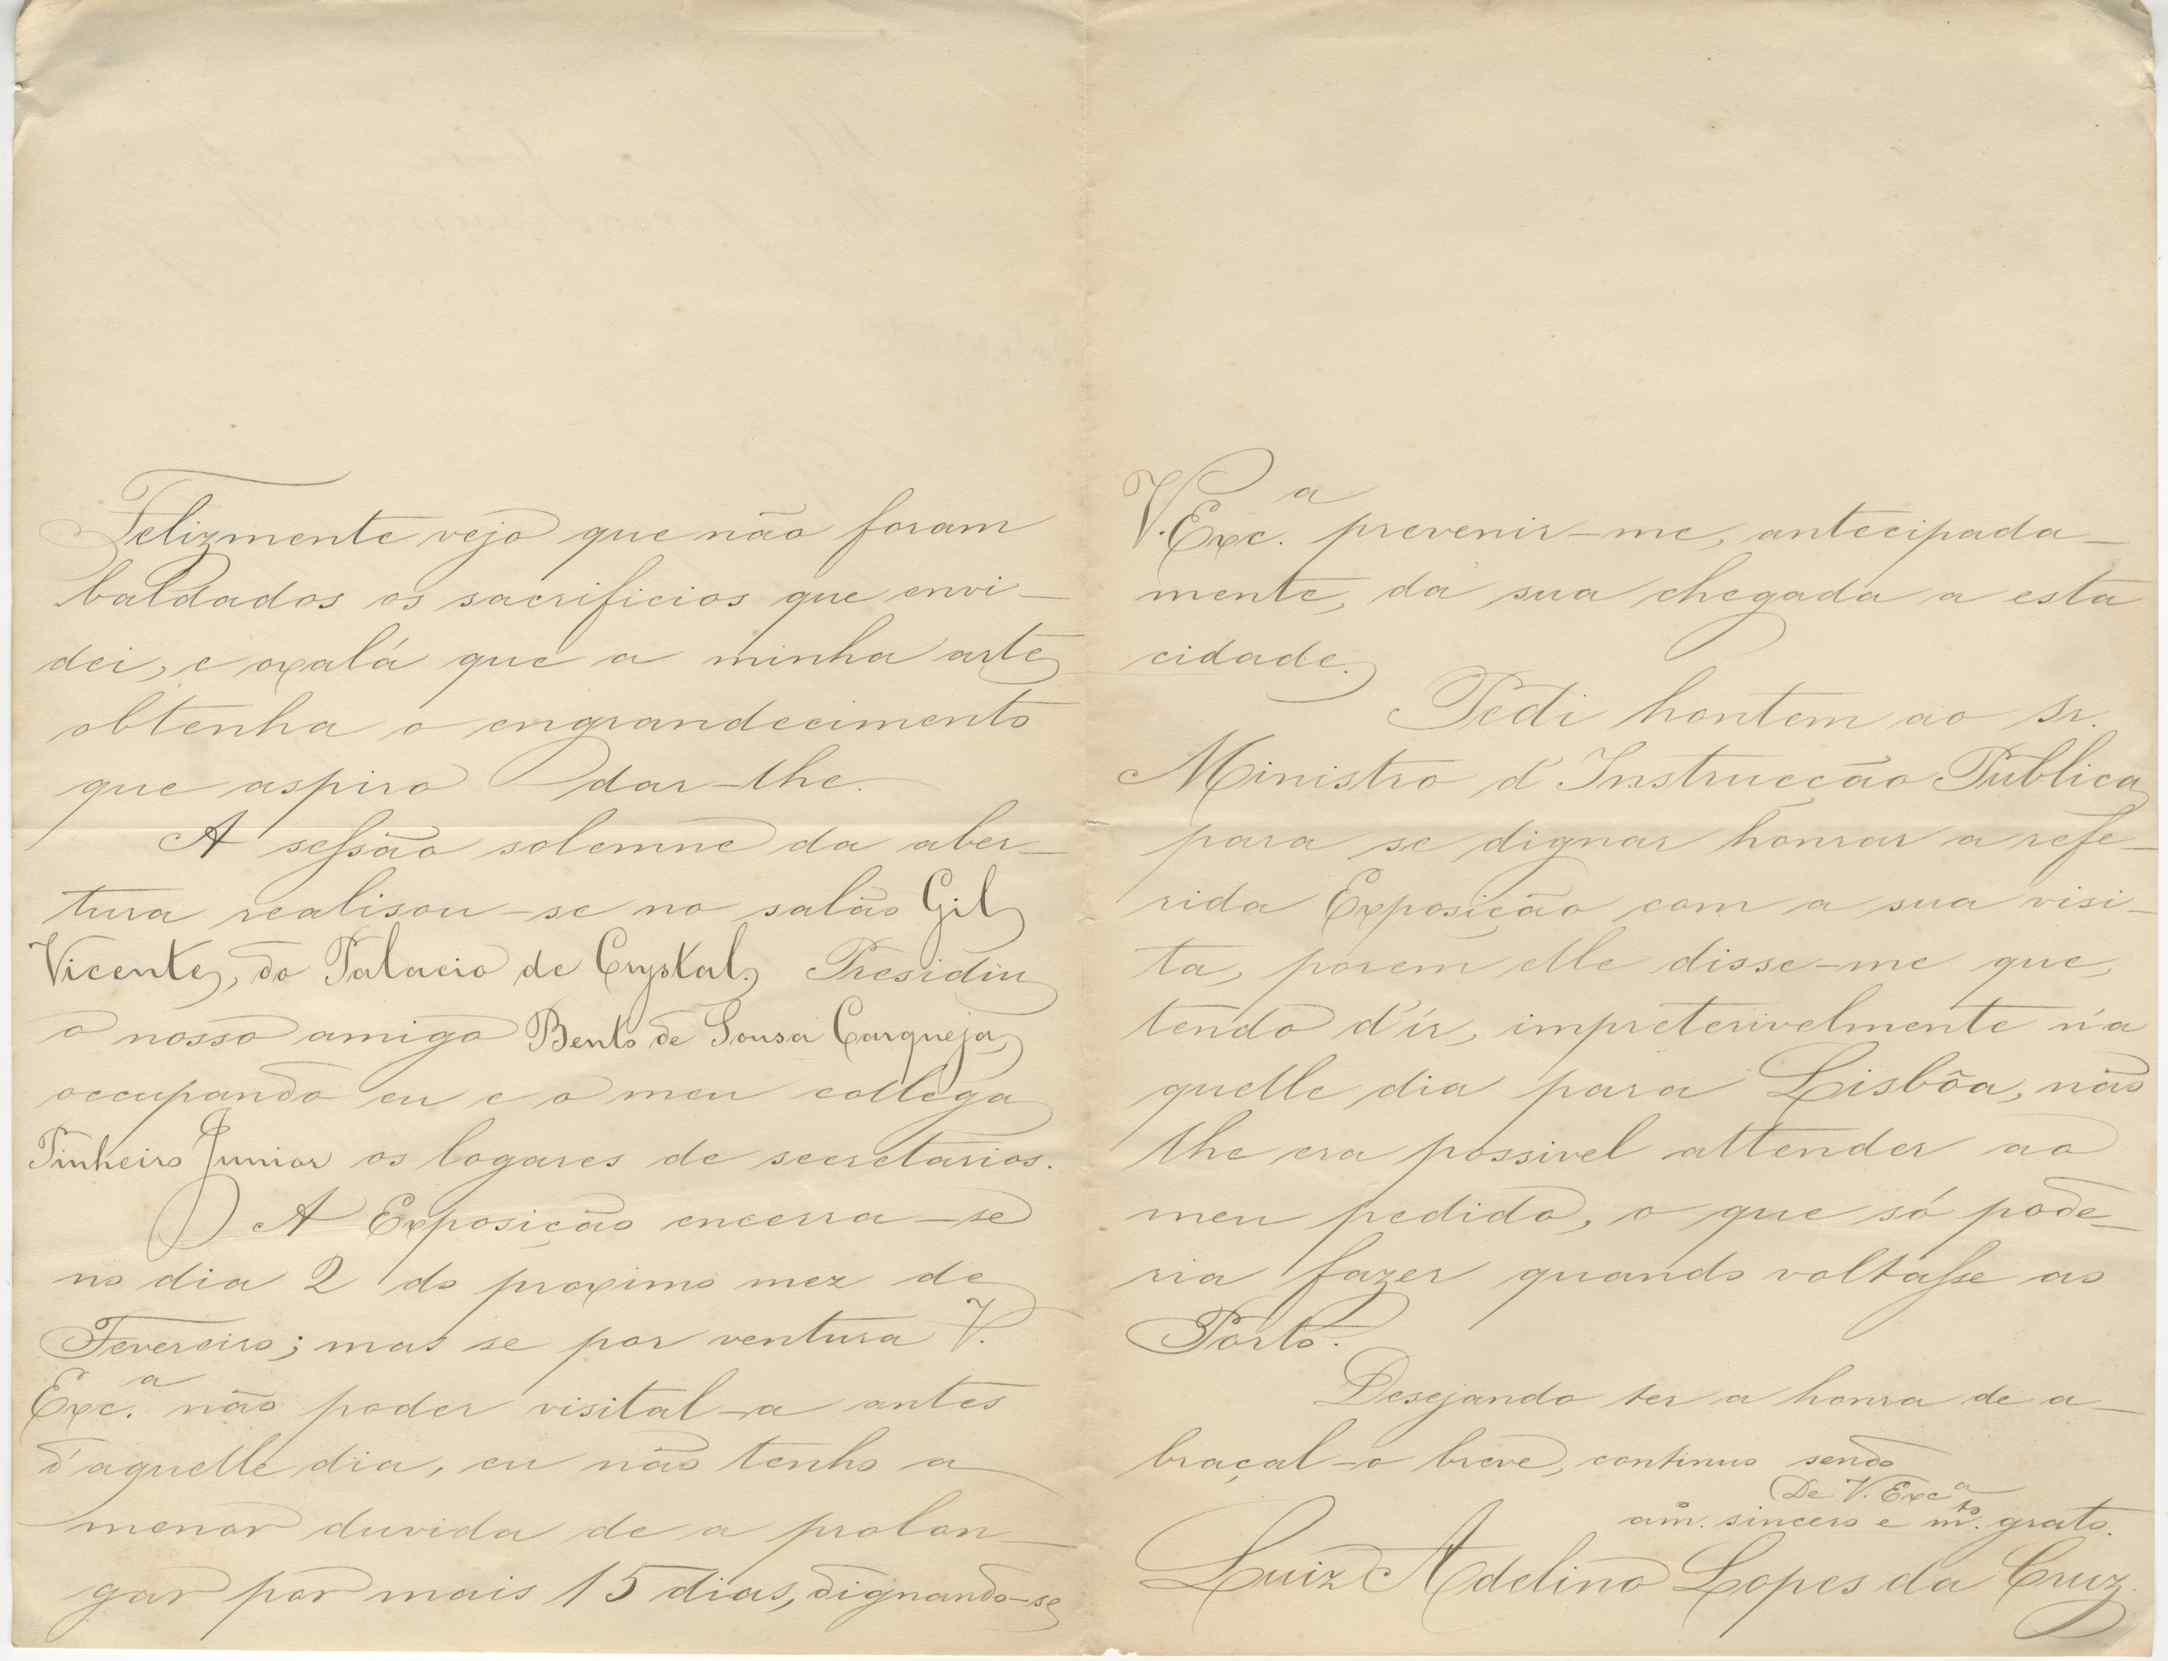 Felizmente vejo que não foram
baldados os sacrificios que envi-
dei, e oxalá que a minha arte
obtenha o engrandecimento
que aspiro dar-lhe.
A sessão solemne da aber-
tura realisou-se no salão Gil
Vicente, do Palacio de Crystal. Presidiu
o nosso amigo Bento de Sousa Carqueja,
occupando eu e o meu collega
Pinheiro Junior os logares de secretarios.
A Exposição encerra-se
no dia 2 do proximo mez de
Fevereiro; mas se por ventura V.
Exc.ª não poder visital-a antes
d'aquelle dia, eu não tenho a
menor duvida de a prolon-
gar por mais 15 dias, dignando-se
V. Exc.ª prevenir-me, antecipada-
mente, da sua chegada a esta
cidade.
Pedi hontem ao Sr.
Ministro d'Instrucção Publica
para se dignar honrar a refe-
rida Exposição com a sua visi-
ta, porem elle disse-me que,
tendo d'ir, impreterivelmente n'a
quelle dia para Lisbôa, não
lhe era possivel attender ao
meu pedido, o que só pode-
ria fazer quando voltasse ao
Porto.
Desejando ter a honra de a-
braçal-o breve, continuo sendo
De V. Exc.ª
am.º sincero e m.to grato.
Luiz Adelino Lopes da Cruz